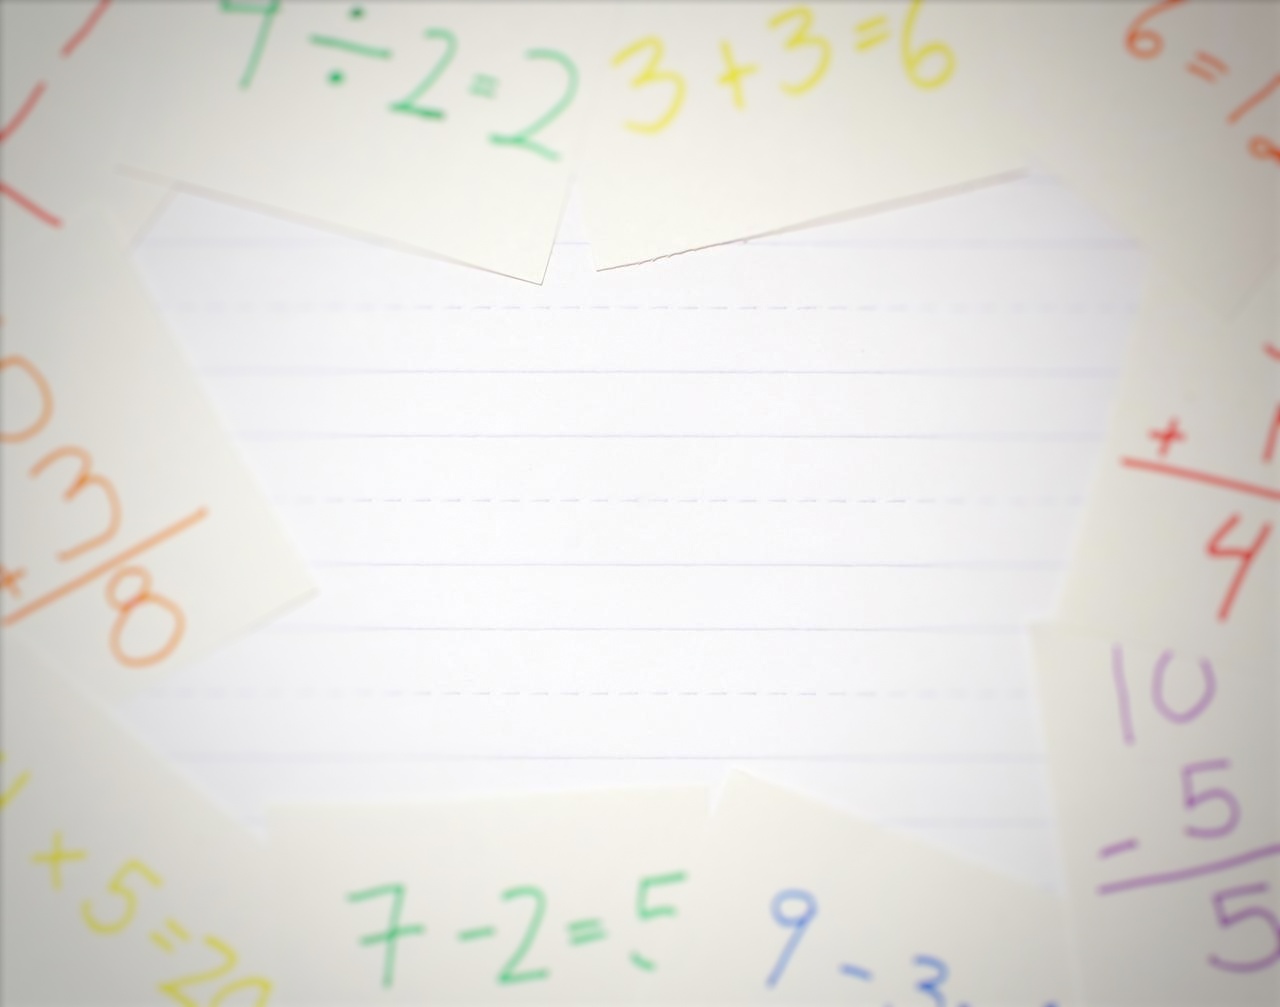 4 ÷ 2 = 2
3 + 3 = 6
6 =
3
8
+
4
10
- 5
5
+ 5 = 20
7 - 2 = 5
9 - 3